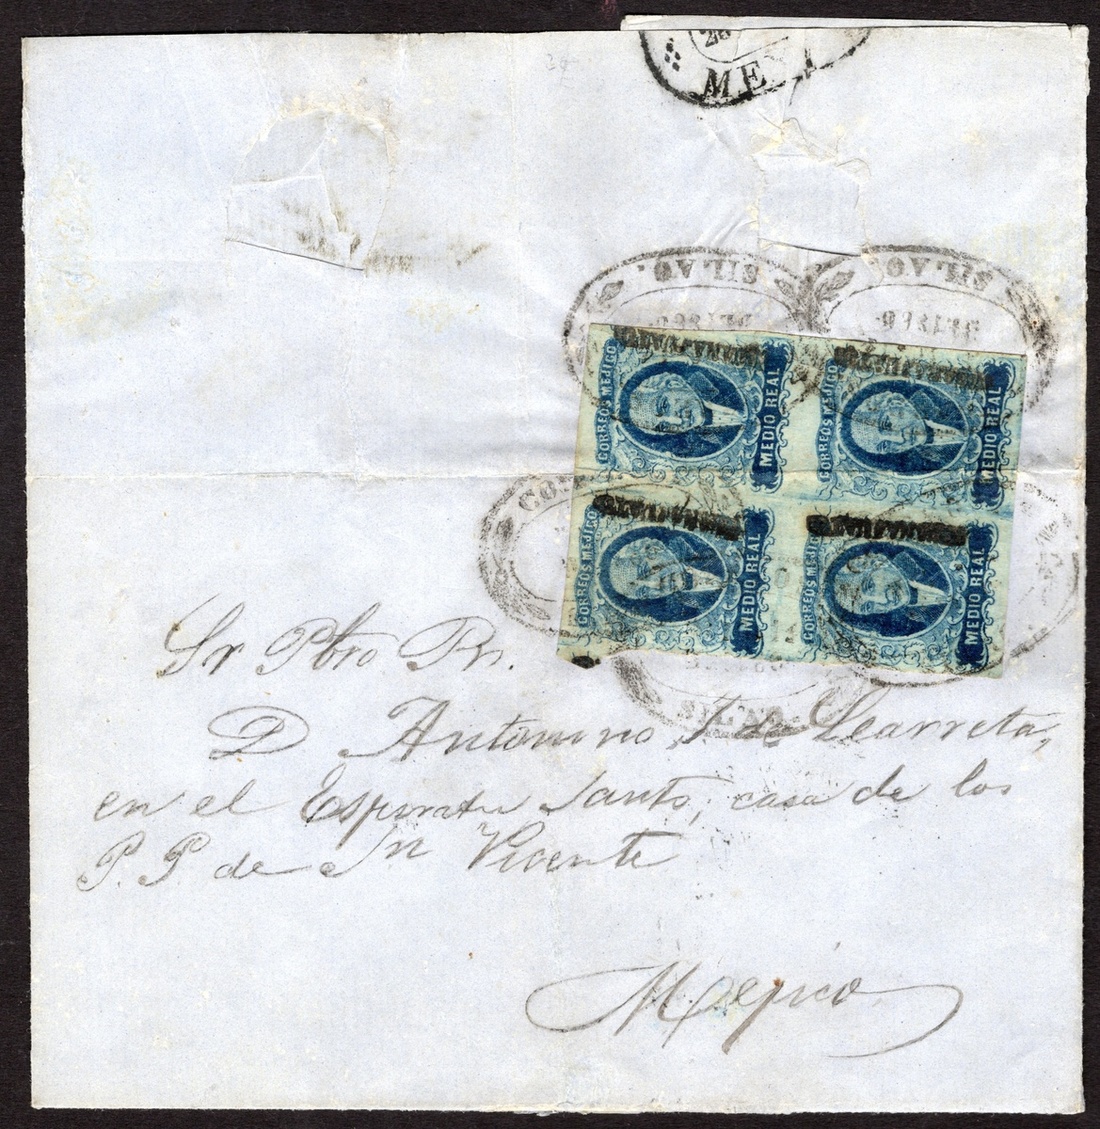 26
MEJ
SILAO.
SILAO.
CORREOS MEJICO
MEDIO REAL
CORREOS MEJICO
MEDIO REAL
GUANAJUATO
GUANAJUATO
CORREOS MEJICO
MEDIO REAL
CORREOS MEJICO
MEDIO REAL
SILAO.
Sr Pbro Br.
D Antonino de Learreta,
en el Espiritu Santo, casa de los
P. P de Sn Vicente
Mejico